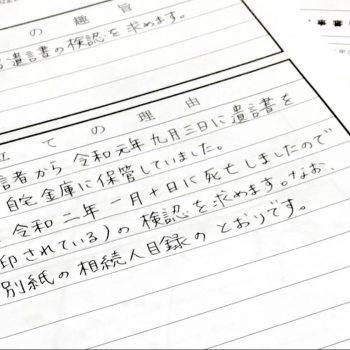 の趣旨
遺言書の検認を求めます。
立ての理由
言者から令和元年九月三日に遺言書を
自宅金庫に保管していました。
令和二年一月十日に死亡しましたので
印されている)の検認を求めます。なお、
別紙の相続人目録のとおりです。